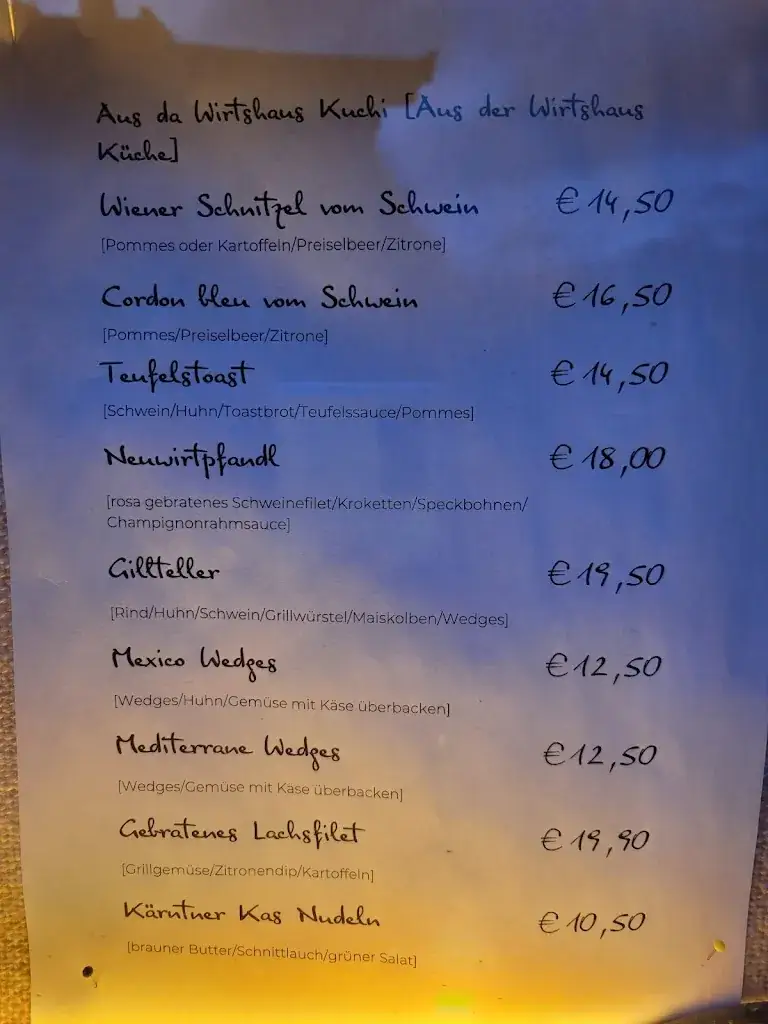 Aus da Wirtshaus Kuchi [Aus der Wirtshaus
Küche]
Wiener Schnitzel vom Schwein € 14,50
[Pommes oder Kartoffeln/Preiselbeer/Zitrone]
Cordon bleu vom Schwein € 16,50
[Pommes/Preiselbeer/Zitrone]
Teufelstoast € 14,50
[Schwein/Huhn/Toastbrot/Teufelssauce/Pommes]
Neuwirtpfandl € 18,00
[rosa gebratenes Schweinefilet/Kroketten/Speckbohnen/
Champignonrahmsauce]
Gillteller € 19,50
[Rind/Huhn/Schwein/Grillwürstel/Maiskolben/Wedges]
Mexico Wedges € 12,50
[Wedges/Huhn/Gemüse mit Käse überbacken]
Mediterrane Wedges € 12,50
[Wedges/Gemüse mit Käse überbacken]
Gebratenes Lachsfilet € 19,90
[Grillgemüse/Zitronendip/Kartoffeln]
Kärntner Kas Nudeln € 10,50
[brauner Butter/Schnittlauch/grüner Salat]